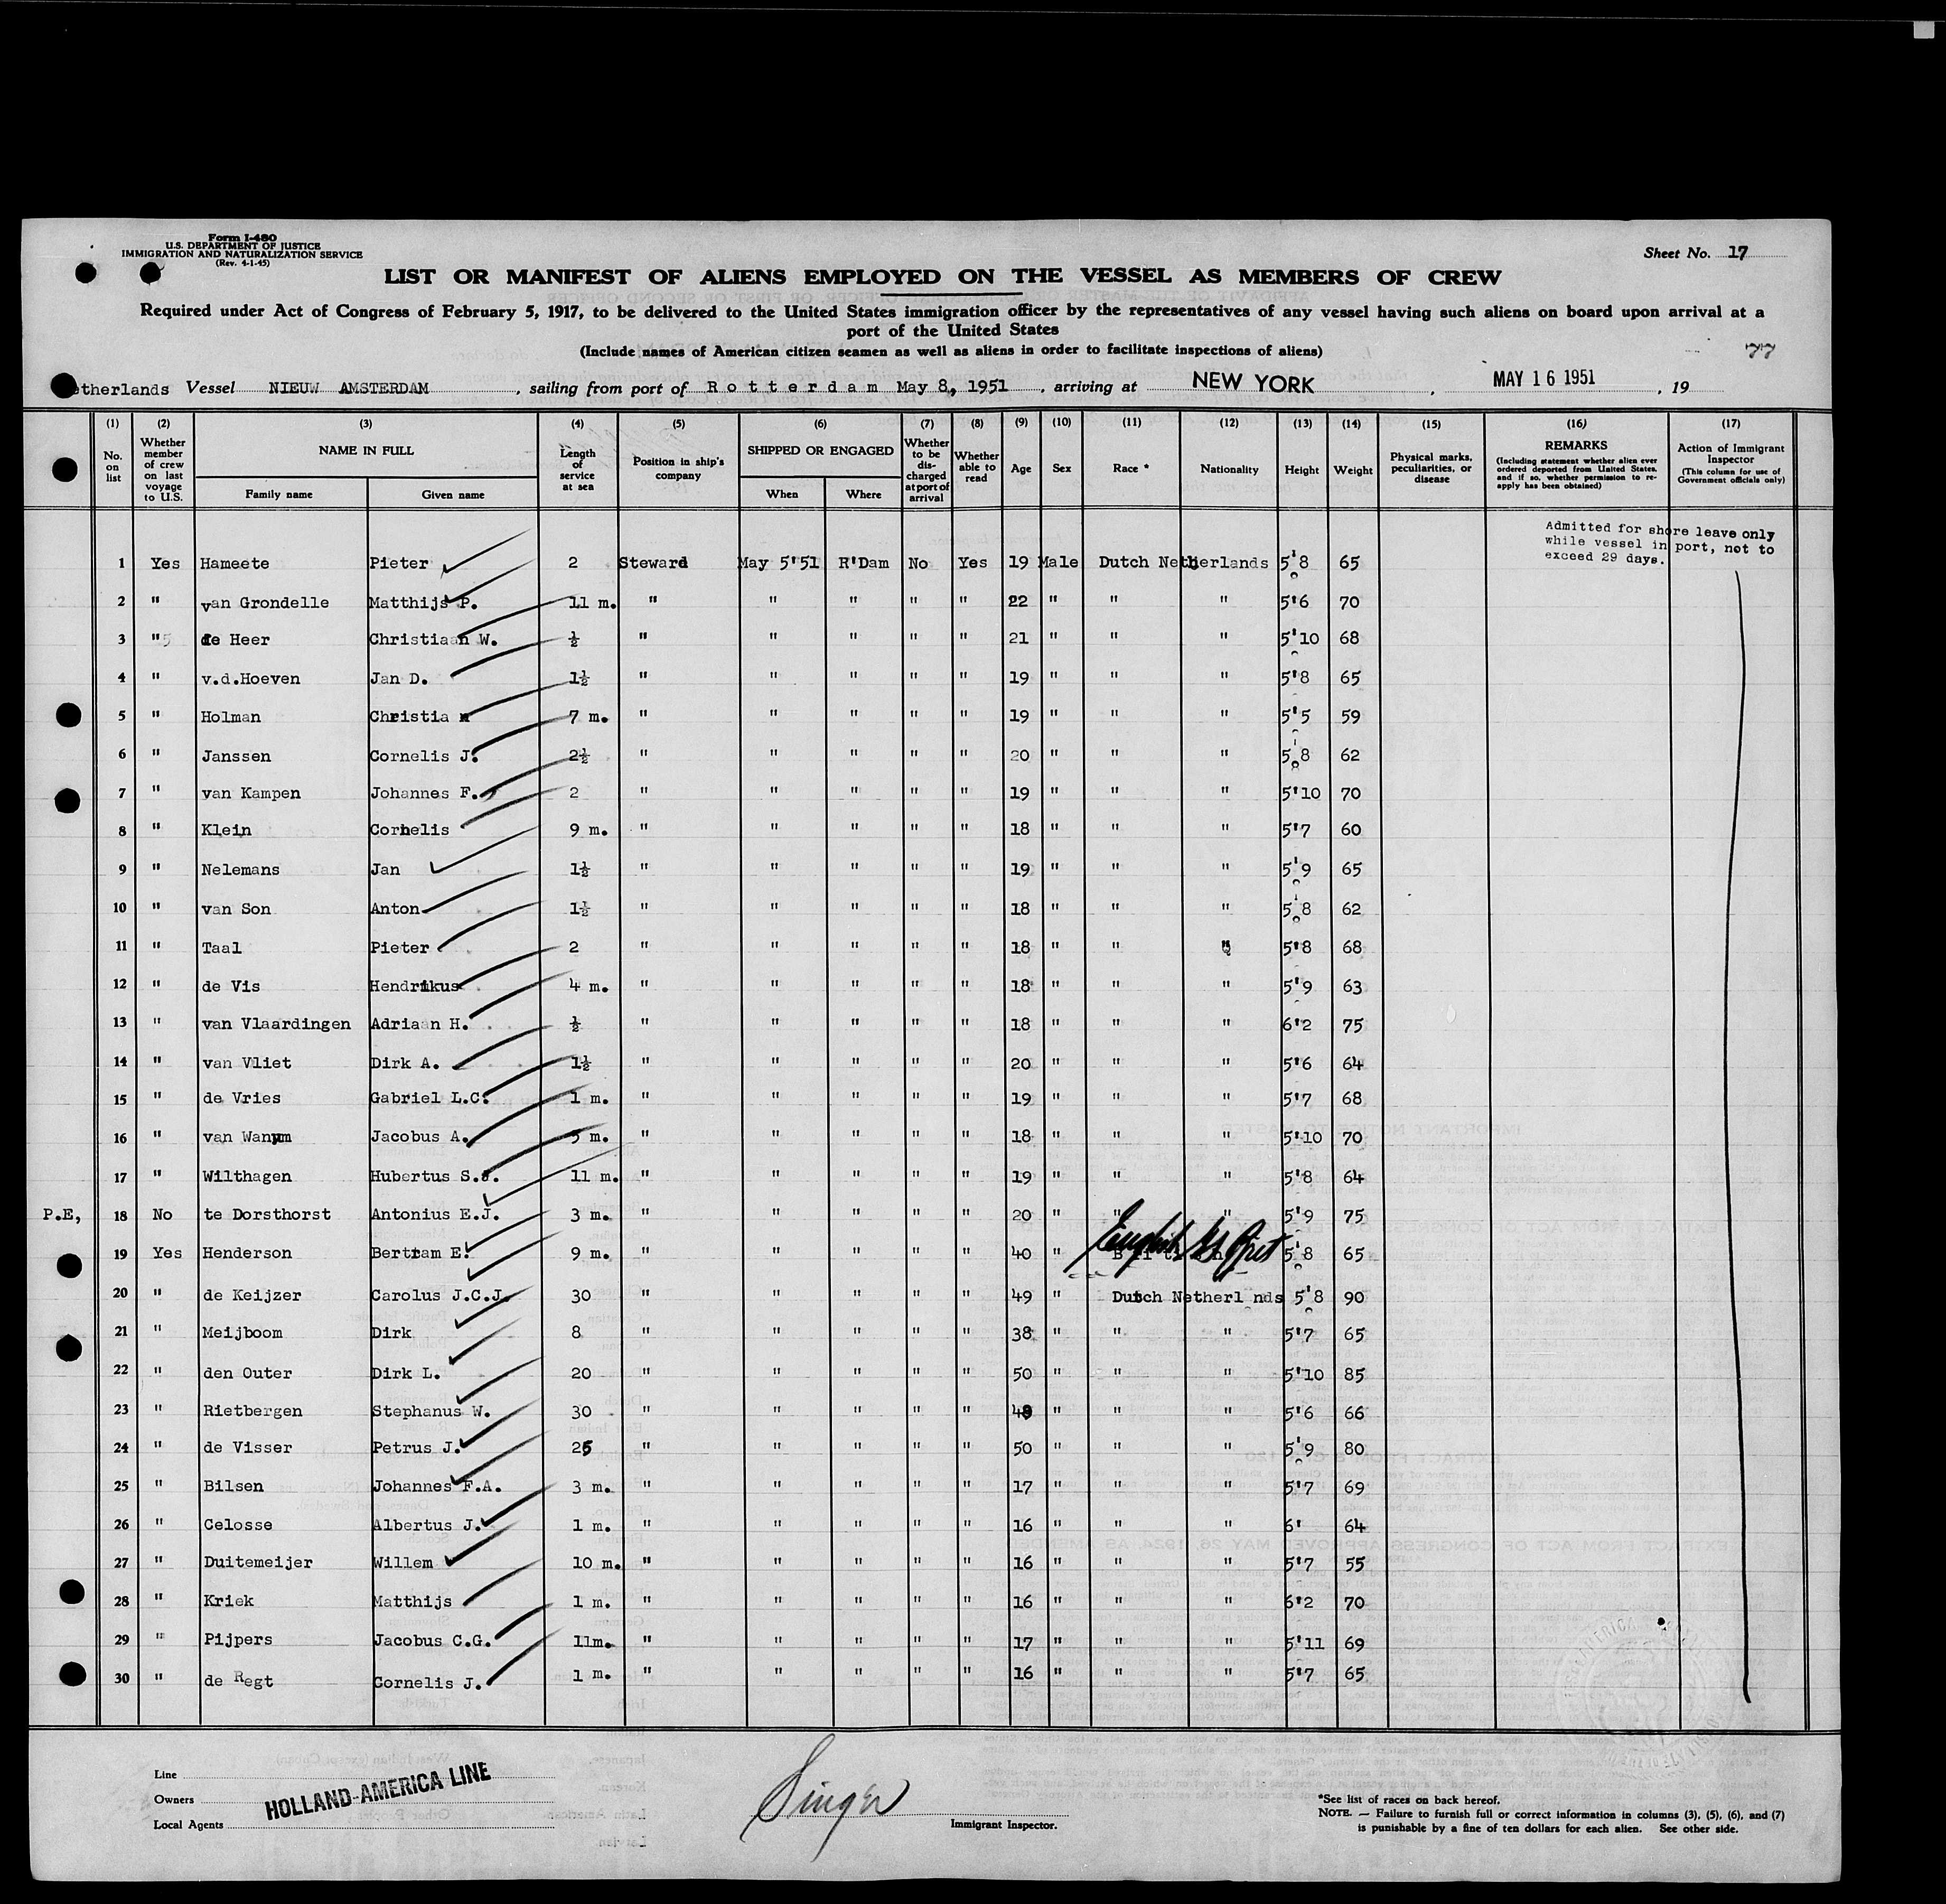 Form I-480
U.S. DEPARTMENT OF JUSTICE
IMMIGRATION AND NATURALIZATION SERVICE
(Rev. 4-1-45)
Sheet No. 17
LIST OR MANIFEST OF ALIENS EMPLOYED ON THE VESSEL AS MEMBERS OF CREW
Required under Act of Congress of February 5, 1917, to be delivered to the United States immigration officer by the representatives of any vessel having such aliens on board upon arrival at a
port of the United States
(Include names of American citizen seamen as well as aliens in order to facilitate inspections of aliens)
77
etherlands Vessel NIEUW AMSTERDAM, sailing from port of Rotterdam May 8, 1951, arriving at NEW YORK, MAY 16 1951, 19
(1) No. on list
(2) Whether member of crew on last voyage to U.S.
(3) NAME IN FULL Family name Given name
(4) Length of service at sea
(5) Position in ship's company
(6) SHIPPED OR ENGAGED When Where
(7) Whether to be discharged at port of arrival
(8) Whether able to read
(9) Age
(10) Sex
(11) Race *
(12) Nationality
(13) Height
(14) Weight
(15) Physical marks, peculiarities, or disease
(16) REMARKS (Including statement whether alien ever ordered deported from United States, and if so, whether permission to re-apply has been obtained)
(17) Action of Immigrant Inspector (This column for use of Government officials only)
Admitted for shore leave only
while vessel in port, not to
exceed 29 days.
1 Yes Hameete Pieter 2 Steward May 5'51 R'Dam No Yes 19 Male Dutch Netherlands 5'8 65
2 " van Grondelle Matthijs P. 11 m. " " " " " 22 " " " 5'6 70
3 " de Heer Christiaan W. ½ " " " " " 21 " " " 5'10 68
4 " v.d.Hoeven Jan D. 1½ " " " " " 19 " " " 5'8 65
5 " Holman Christia n 7 m. " " " " " 19 " " " 5'5 59
6 " Janssen Cornelis J. 2½ " " " " " 20 " " " 5'8 62
7 " van Kampen Johannes F. 2 " " " " " 19 " " " 5'10 70
8 " Klein Cornelis 9 m. " " " " " 18 " " " 5'7 60
9 " Nelemans Jan 1½ " " " " " 19 " " " 5'9 65
10 " van Son Anton 1½ " " " " " 18 " " " 5'8 62
11 " Taal Pieter 2 " " " " " 18 " " " 5'8 68
12 " de Vis Hendrikus 4 m. " " " " " 18 " " " 5'9 63
13 " van Vlaardingen Adriaan H. ½ " " " " " 18 " " " 6'2 75
14 " van Vliet Dirk A. 1½ " " " " " 20 " " " 5'6 64
15 " de Vries Gabriel L.C. 1 m. " " " " " 19 " " " 5'7 68
16 " van Wanum Jacobus A. 5 m. " " " " " 18 " " " 5'10 70
17 " Wilthagen Hubertus S.J. 11 m. " " " " " 19 " " " 5'8 64
P.E, 18 No te Dorsthorst Antonius E.J. 3 m. " " " " " 20 " " " 5'9 75
19 Yes Henderson Bertram E. 9 m. " " " " " 40 " English 5'8 65
20 " de Keijzer Carolus J.C.J. 30 " " " " " 49 " Dutch Netherl nds 5'8 90
21 " Meijboom Dirk 8 " " " " " 38 " " " 5'7 65
22 " den Outer Dirk L. 20 " " " " " 50 " " " 5'10 85
23 " Rietbergen Stephanus W. 30 " " " " " 48 " " " 5'6 66
24 " de Visser Petrus J. 25 " " " " " 50 " " " 5'9 80
25 " Bilsen Johannes F.A. 3 m. " " " " " 17 " " " 5'7 69
26 " Celosse Albertus J. 1 m. " " " " " 16 " " " 6' 64
27 " Duitemeijer Willem 10 m. " " " " " 16 " " " 5'7 55
28 " Kriek Matthijs 1 m. " " " " " 16 " " " 6'2 70
29 " Pijpers Jacobus C.G. 11m. " " " " " 17 " " " 5'11 69
30 " de Regt Cornelis J. 1 m. " " " " " 16 " " " 5'7 65
Line
Owners HOLLAND-AMERICA LINE
Local Agents
Singer
Immigrant Inspector.
*See list of races on back hereof.
NOTE. — Failure to furnish full or correct information in columns (3), (5), (6), and (7)
is punishable by a fine of ten dollars for each alien. See other side.